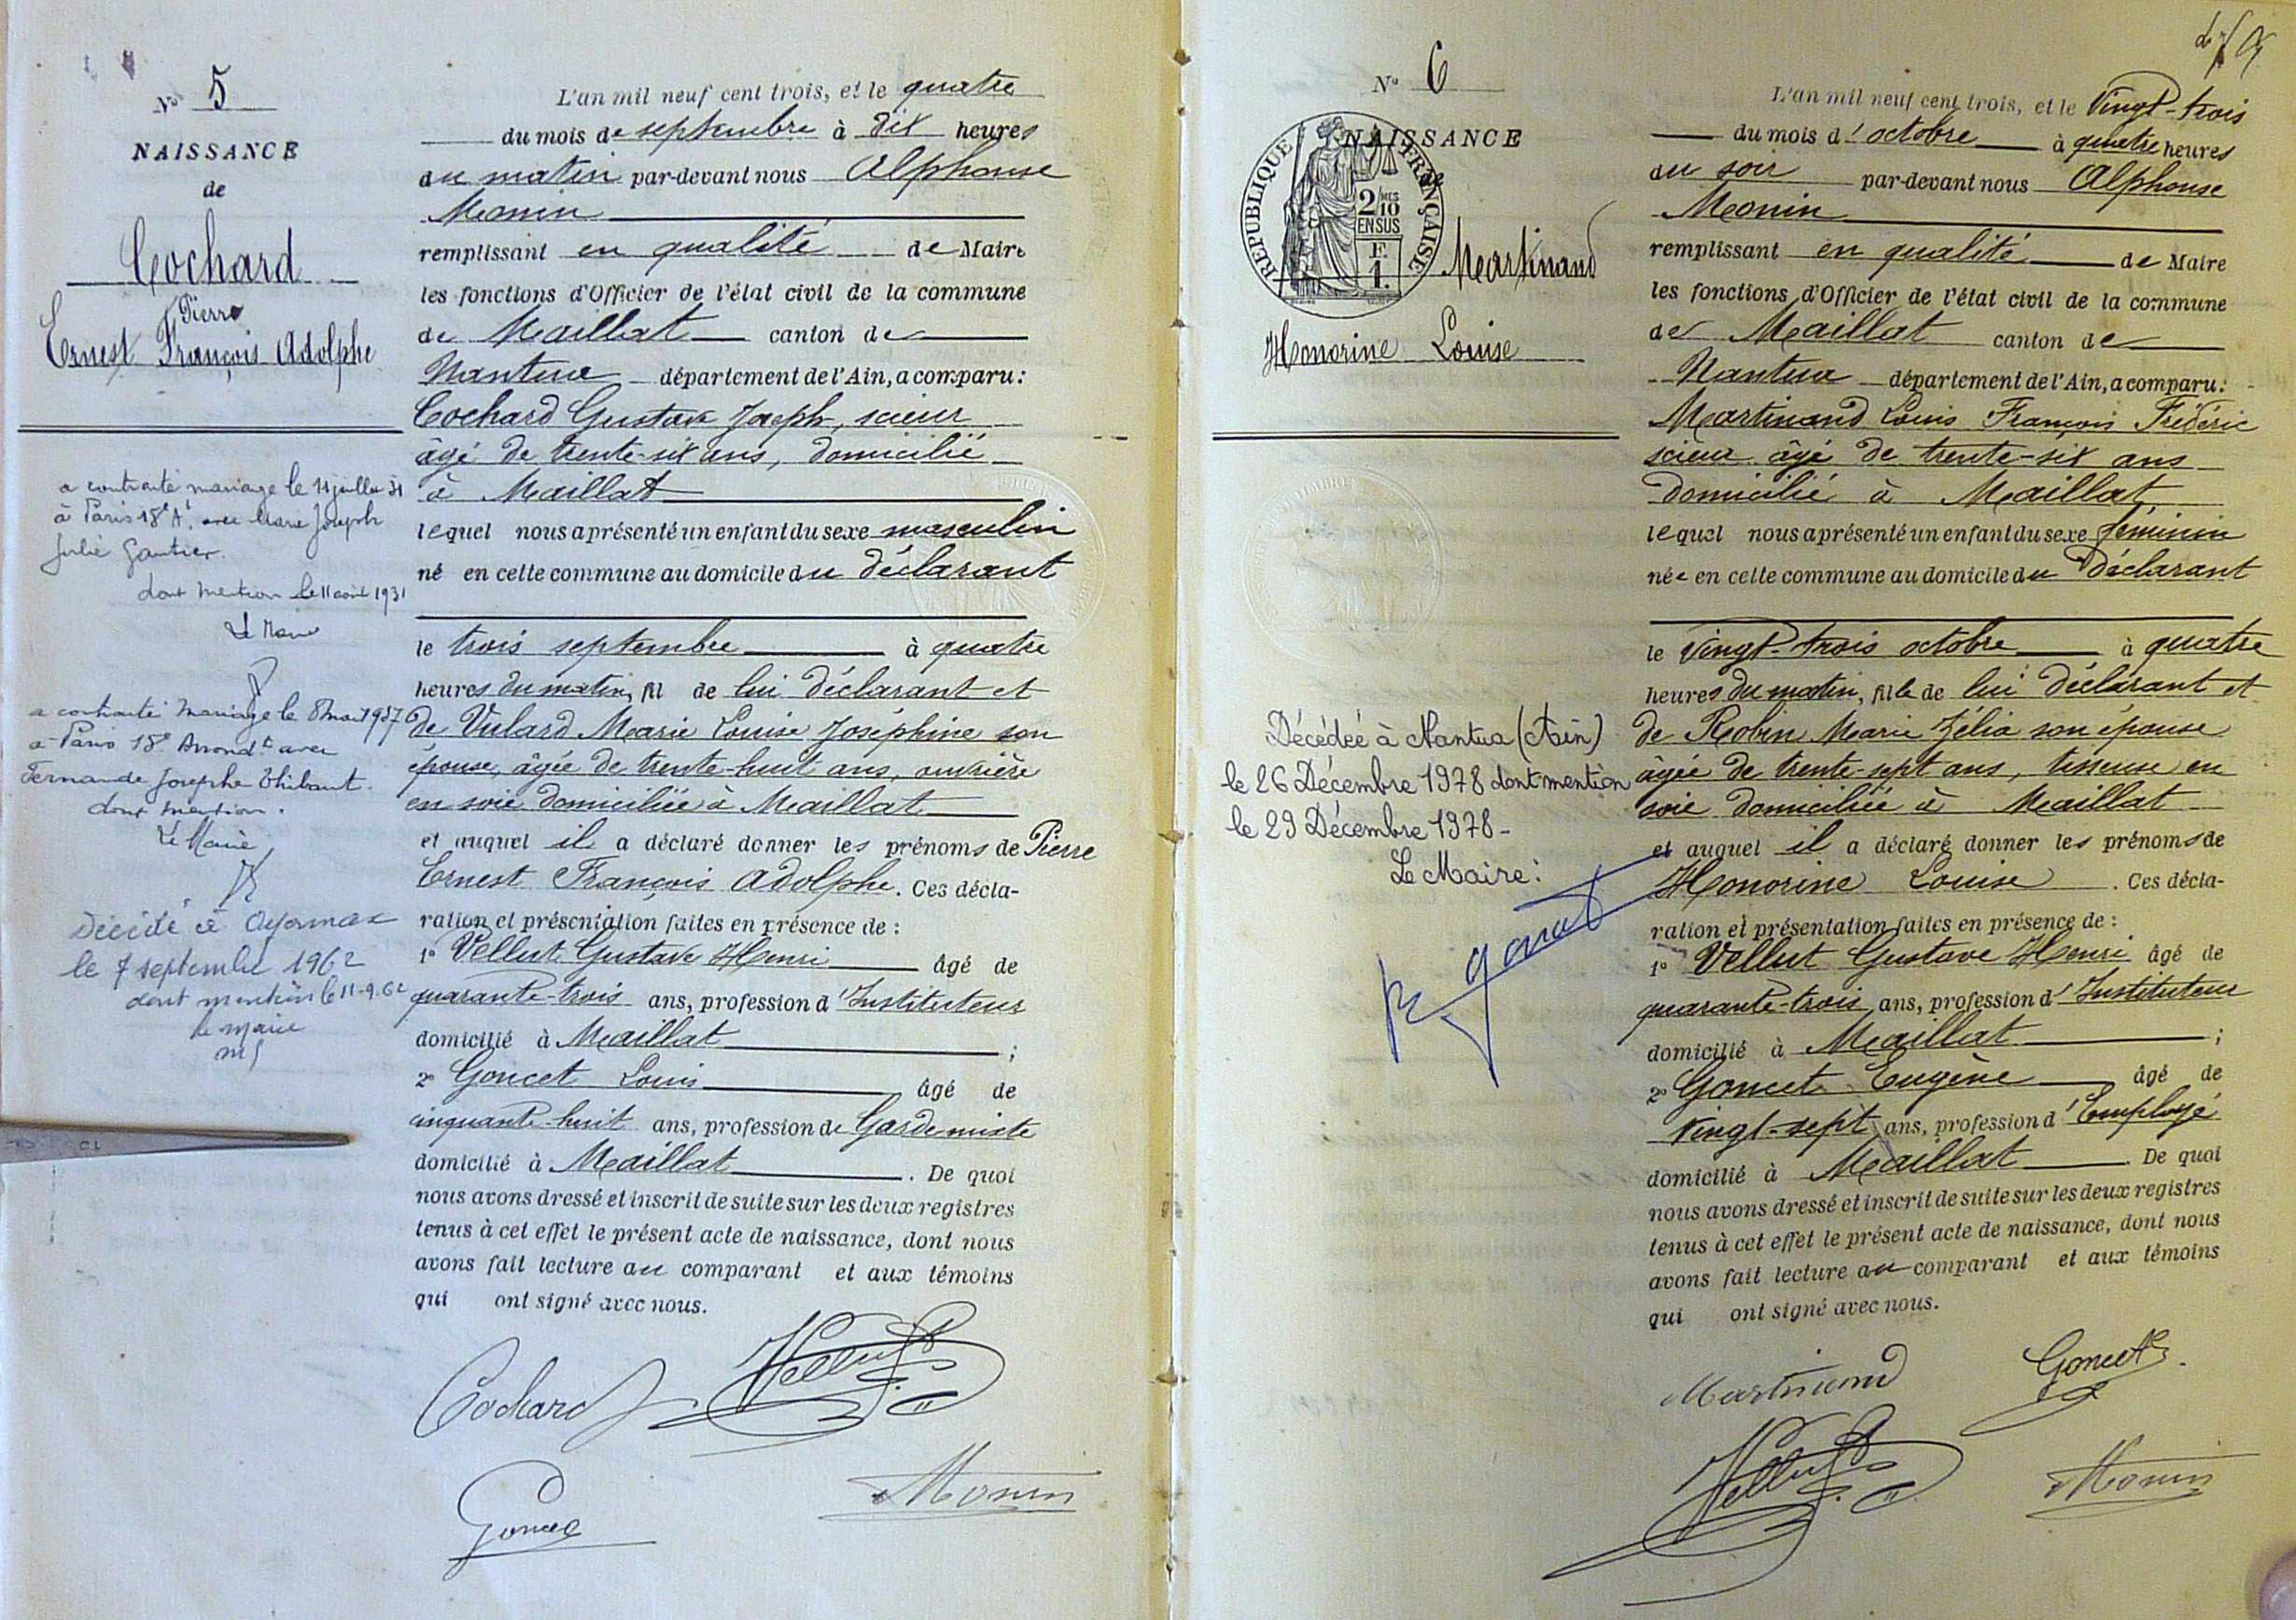 Nº 5
NAISSANCE
de
Cochard
Pierre
Ernest François Adolphe
a contracté mariage le 11 juillet 31
à Paris 18e Ar. avec Marie Joseph
Julie Gautier.
dont mention le 11 août 1931
Le Maire
a contracté mariage le 8 mai 1957
à Paris 18e Arrondt avec
Fernande Josephe Thibaut.
dont mention.
Le Maire
Décédé à Oyonnax
le 7 septembre 1962
dont mention le 11-9.62
le maire
L'an mil neuf cent trois, et le quatre
du mois de septembre à dix heures
du matin par-devant nous Alphonse
Monin
remplissant en qualité de Maire
les fonctions d'Officier de l'état civil de la commune
de Maillat canton de
Nantua département de l'Ain, a comparu:
Cochard Gustave Joseph, scieur
âgé de trente-six ans, domicilié
à Maillat
lequel nous a présenté un enfant du sexe masculin
né en cette commune au domicile du déclarant
le trois septembre à quatre
heures du matin, fil de lui déclarant et
de Vulard Marie Louise Joséphine son
épouse, âgée de trente-huit ans, ouvrière
en soie domiciliée à Maillat
et auquel il a déclaré donner les prénoms de Pierre
Ernest François Adolphe. Ces décla-
ration et présentation faites en présence de :
1º Vellut Gustave Henri âgé de
quarante-trois ans, profession d'Instituteur
domicilié à Maillat ;
2º Goncet Louis âgé de
cinquante-huit ans, profession de Garde mixte
domicilié à Maillat. De quoi
nous avons dressé et inscrit de suite sur les deux registres
tenus à cet effet le présent acte de naissance, dont nous
avons fait lecture au comparant et aux témoins
qui ont signé avec nous.
Cochard Vellut
Goncet Monin
Nº 6
NAISSANCE
de
RÉPUBLIQUE FRANÇAISE
2/10 MES
EN SUS
F.
1.
Martinand
Honorine Louise
Décédée à Nantua (Ain)
le 26 Décembre 1978 dont mention
le 29 Décembre 1978-
Le Maire:
L'an mil neuf cent trois, et le Vingt-trois
du mois d'octobre à quatre heures
du soir par-devant nous Alphonse
Monin
remplissant en qualité de Maire
les fonctions d'Officier de l'état civil de la commune
de Maillat canton de
Nantua département de l'Ain, a comparu:
Martinand Louis François Frédéric
scieur âgé de trente-six ans
domicilié à Maillat
lequel nous a présenté un enfant du sexe féminin
née en cette commune au domicile du déclarant
le Vingt-trois octobre à quatre
heures du matin, fille de lui déclarant et
de Robin Marie Zélia son épouse
âgée de trente-sept ans, tisseuse en
soie domiciliée à Maillat
et auquel il a déclaré donner les prénoms de
Honorine Louise. Ces décla-
ration et présentation faites en présence de :
1º Vellut Gustave Henri âgé de
quarante-trois ans, profession d'Instituteur
domicilié à Maillat ;
2º Goncet Eugène âgé de
vingt-sept ans, profession d'Employé
domicilié à Maillat. De quoi
nous avons dressé et inscrit de suite sur les deux registres
tenus à cet effet le présent acte de naissance, dont nous
avons fait lecture au comparant et aux témoins
qui ont signé avec nous.
Martinand Goncet
Vellut Monin